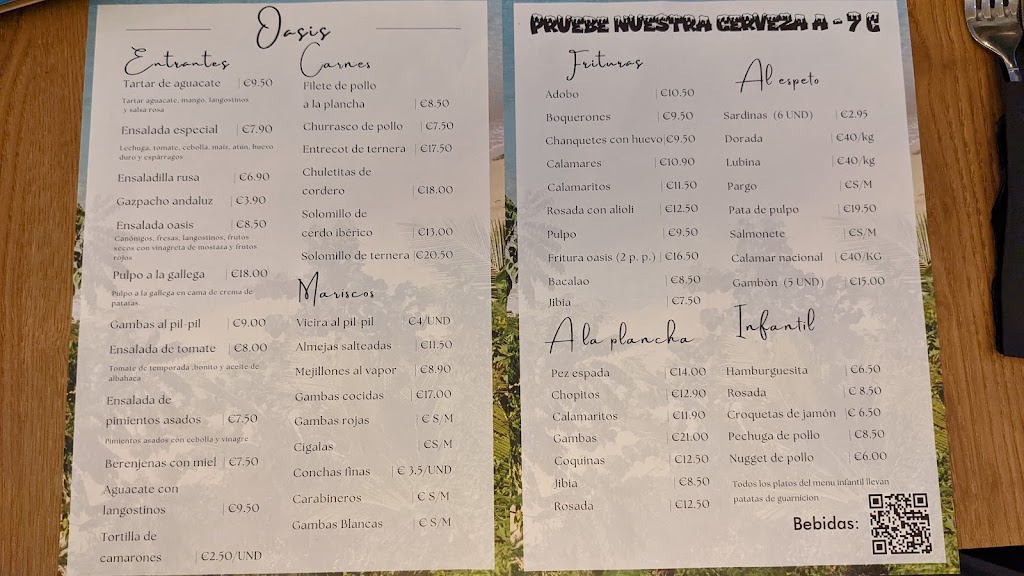 Oasis
Entrantes
Tartar de aguacate | €9.50
Tartar aguacate, mango, langostinos
y salsa rosa
Ensalada especial | €7.90
Lechuga, tomate, cebolla, maíz, atún, huevo
duro y espárragos
Ensaladilla rusa | €6.90
Gazpacho andaluz | €3.90
Ensalada oasis | €8.50
Canónigos, fresas, langostinos, frutos
secos con vinagreta de mostaza y frutos
rojos
Pulpo a la gallega | €18.00
Pulpo a la gallega en cama de crema de
patatas.
Gambas al pil-pil | €9.00
Ensalada de tomate | €8.00
Tomate de temporada ,bonito y aceite de
albahaca
Ensalada de
pimientos asados | €7.50
Pimientos asados con cebolla y vinagre
Berenjenas con miel | €7.50
Aguacate con
langostinos | €9.50
Tortilla de
camarones | €2.50/UND
Carnes
Filete de pollo
a la plancha | €8.50
Churrasco de pollo | €7.50
Entrecot de ternera | €17.50
Chuletitas de
cordero | €18.00
Solomillo de
cerdo ibérico | €13.00
Solomillo de ternera | €20.50
Mariscos
Vieira al pil-pil €4/UND
Almejas salteadas | €11.50
Mejillones al vapor | €8.90
Gambas cocidas | €17.00
Gambas rojas | € S/M
Cigalas | €S/M
Conchas finas | € 3.5/UND
Carabineros | € S/M
Gambas Blancas | € S/M
PRUEBE NUESTRA CERVEZA A - 7 C
Frituras
Adobo | €10.50
Boquerones | €9.50
Chanquetes con huevo | €9.50
Calamares | €10.90
Calamaritos | €11.50
Rosada con alioli | €12.50
Pulpo | €9.50
Fritura oasis (2 p. p.) | €16.50
Bacalao | €8.50
Jibia | €7.50
A la plancha
Pez espada | €14.00
Chopitos | €12.90
Calamaritos | €11.90
Gambas | €21.00
Coquinas | €12.50
Jibia | €8.50
Rosada | €12.50
Al espeto
Sardinas (6 UND) | €2.95
Dorada | €40/kg
Lubina | €40/kg
Pargo | €S/M
Pata de pulpo | €19.50
Salmonete | €S/M
Calamar nacional | €40/KG
Gambón (5 UND) | €15.00
Infantil
Hamburguesita | €6.50
Rosada | € 8.50
Croquetas de jamón | € 6.50
Pechuga de pollo | €8.50
Nugget de pollo | €6.00
Todos los platos del menu infantil llevan
patatas de guarnicion
Bebidas: